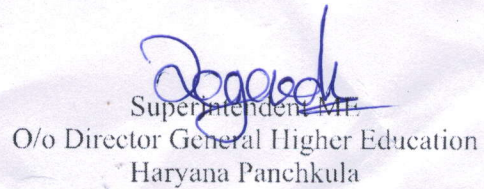 Superintendent ME
O/o Director General Higher Education
Haryana Panchkula